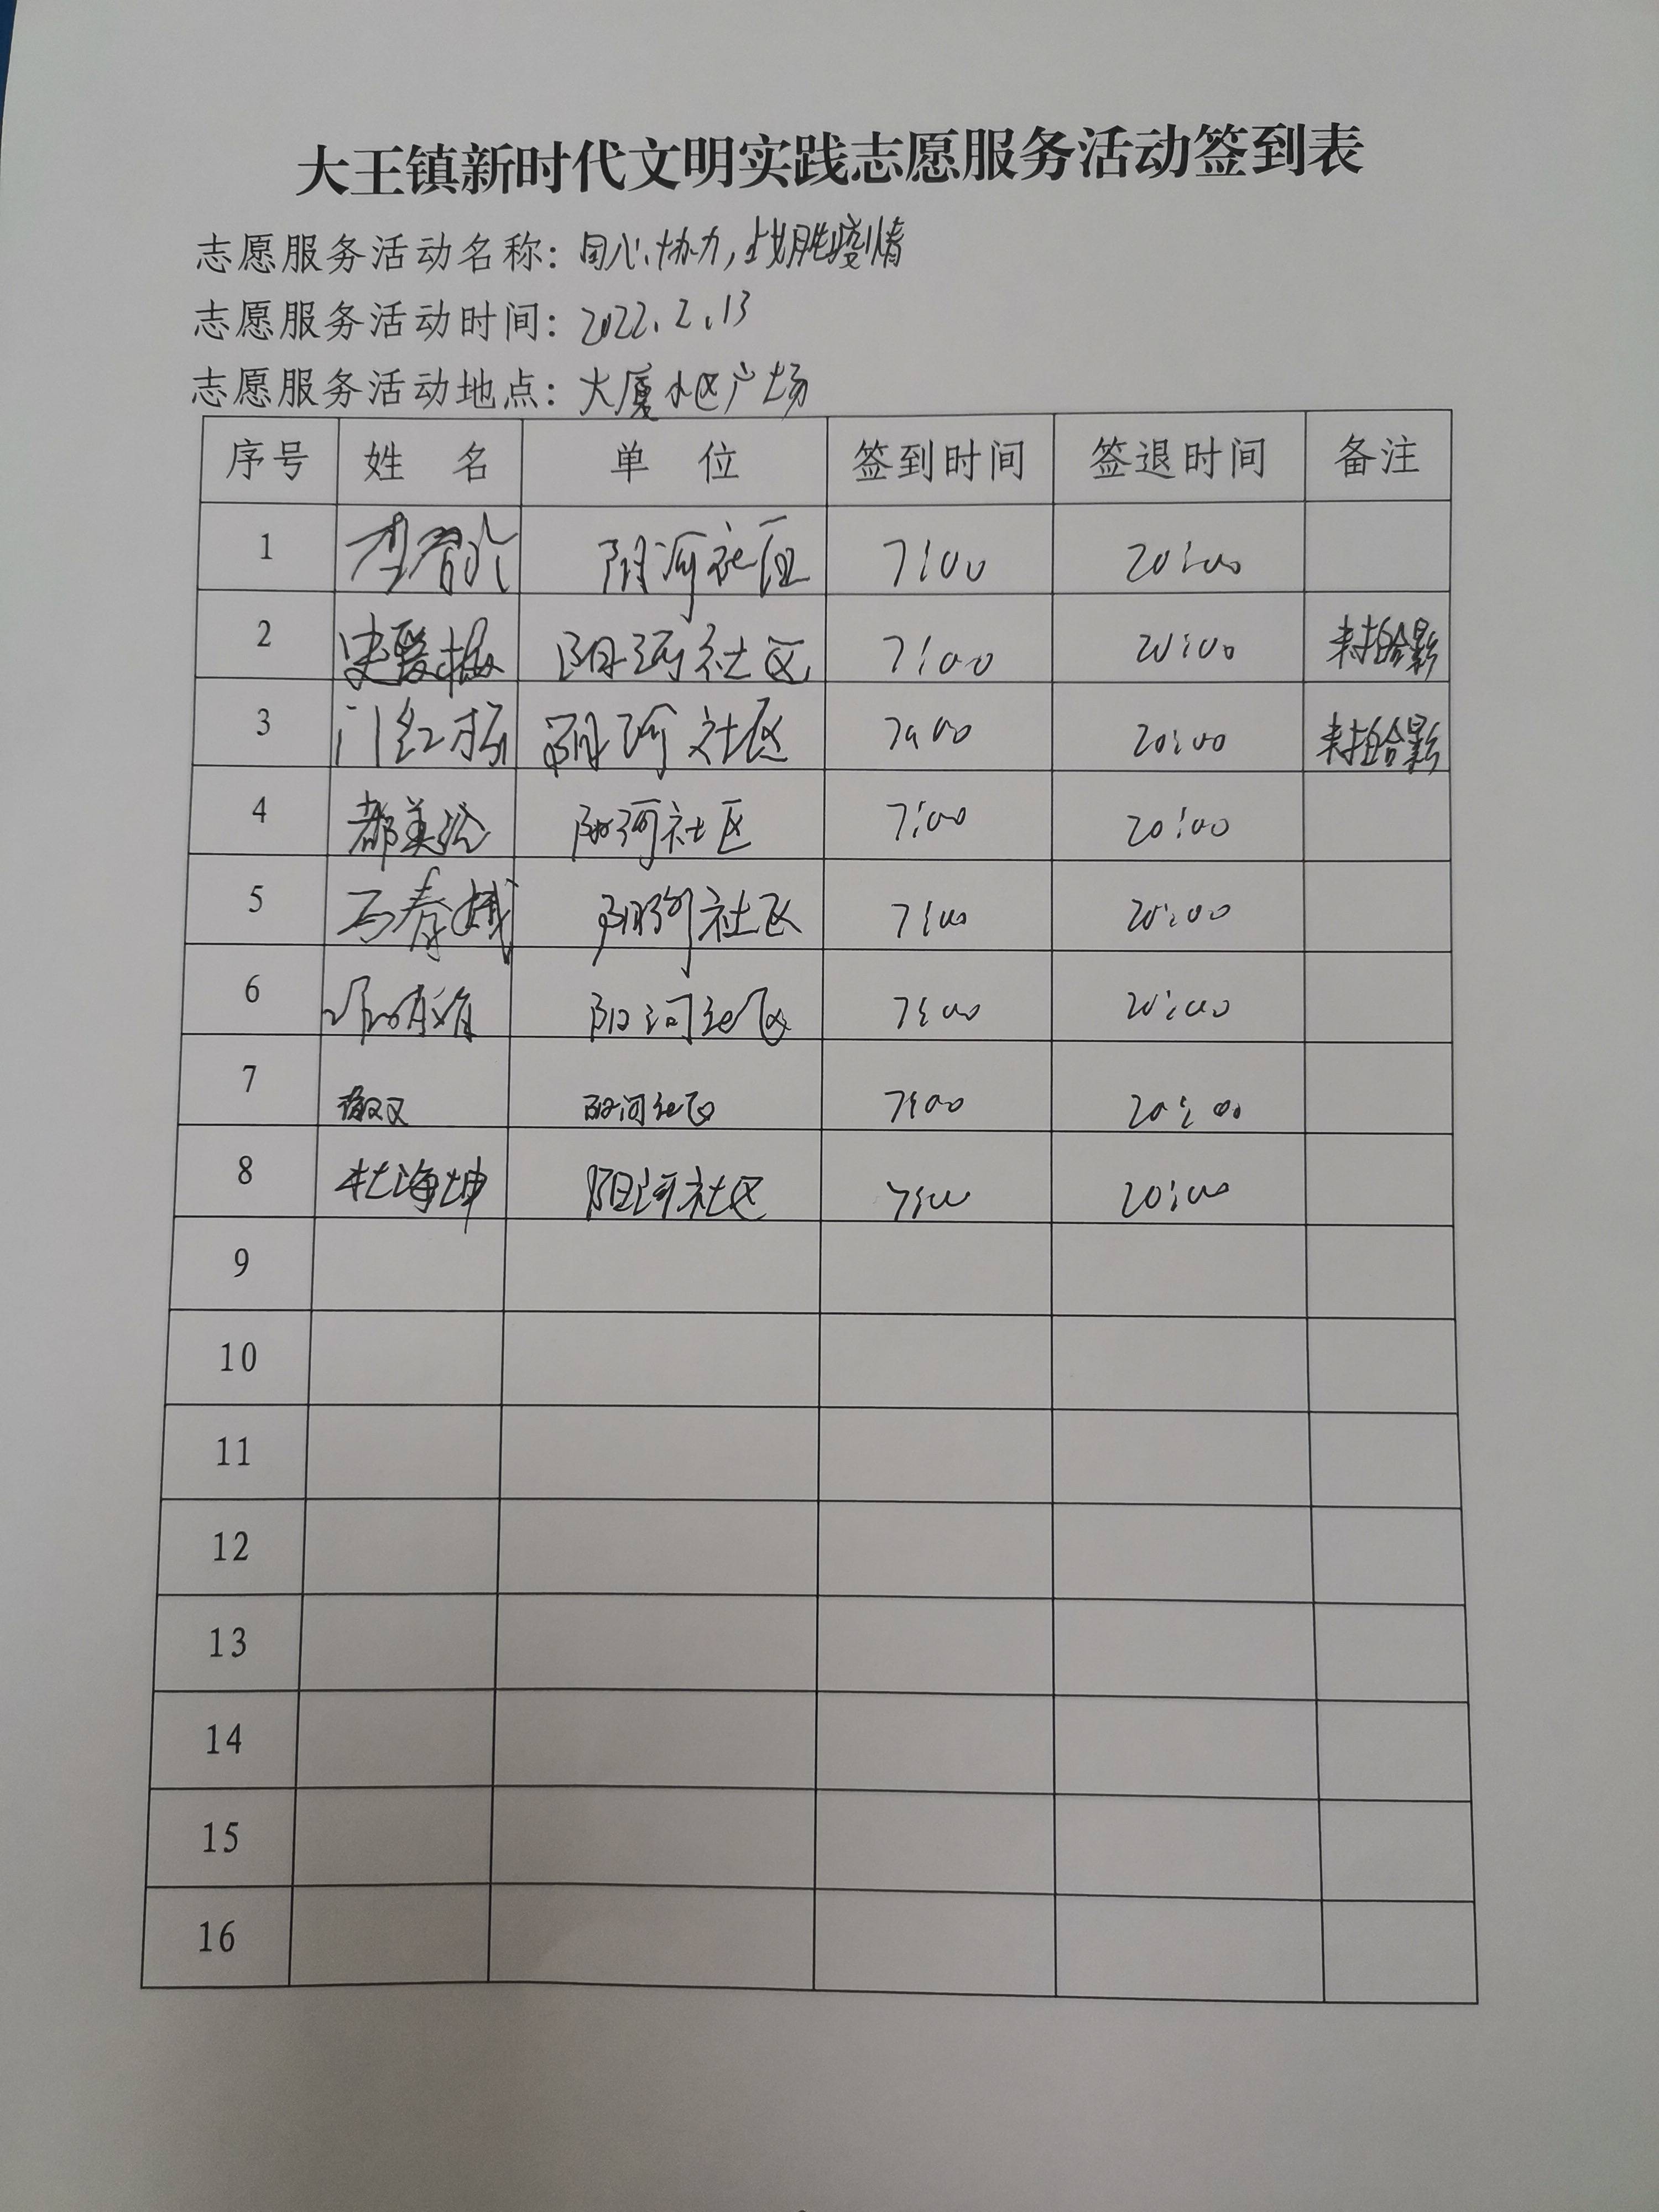 大王镇新时代文明实践志愿服务活动签到表
志愿服务活动名称：同心协力，战胜疫情
志愿服务活动时间：2022.2.13
志愿服务活动地点：大厦小区广场
序号 姓 名 单 位 签到时间 签退时间 备注
1 李 阳河社区 7:00 20:00
2 史爱梅 阳河社区 7:00 20:00 未拍合影
3 门红 阳河社区 7:00 20:00 未拍合影
4 都美玲 阳河社区 7:00 20:00
5 马春 阳河社区 7:00 20:00
6 阳河社区 7:00 20:00
7 阳河社区 7:00 20:00
8 杜海坤 阳河社区 7:00 20:00
9
10
11
12
13
14
15
16